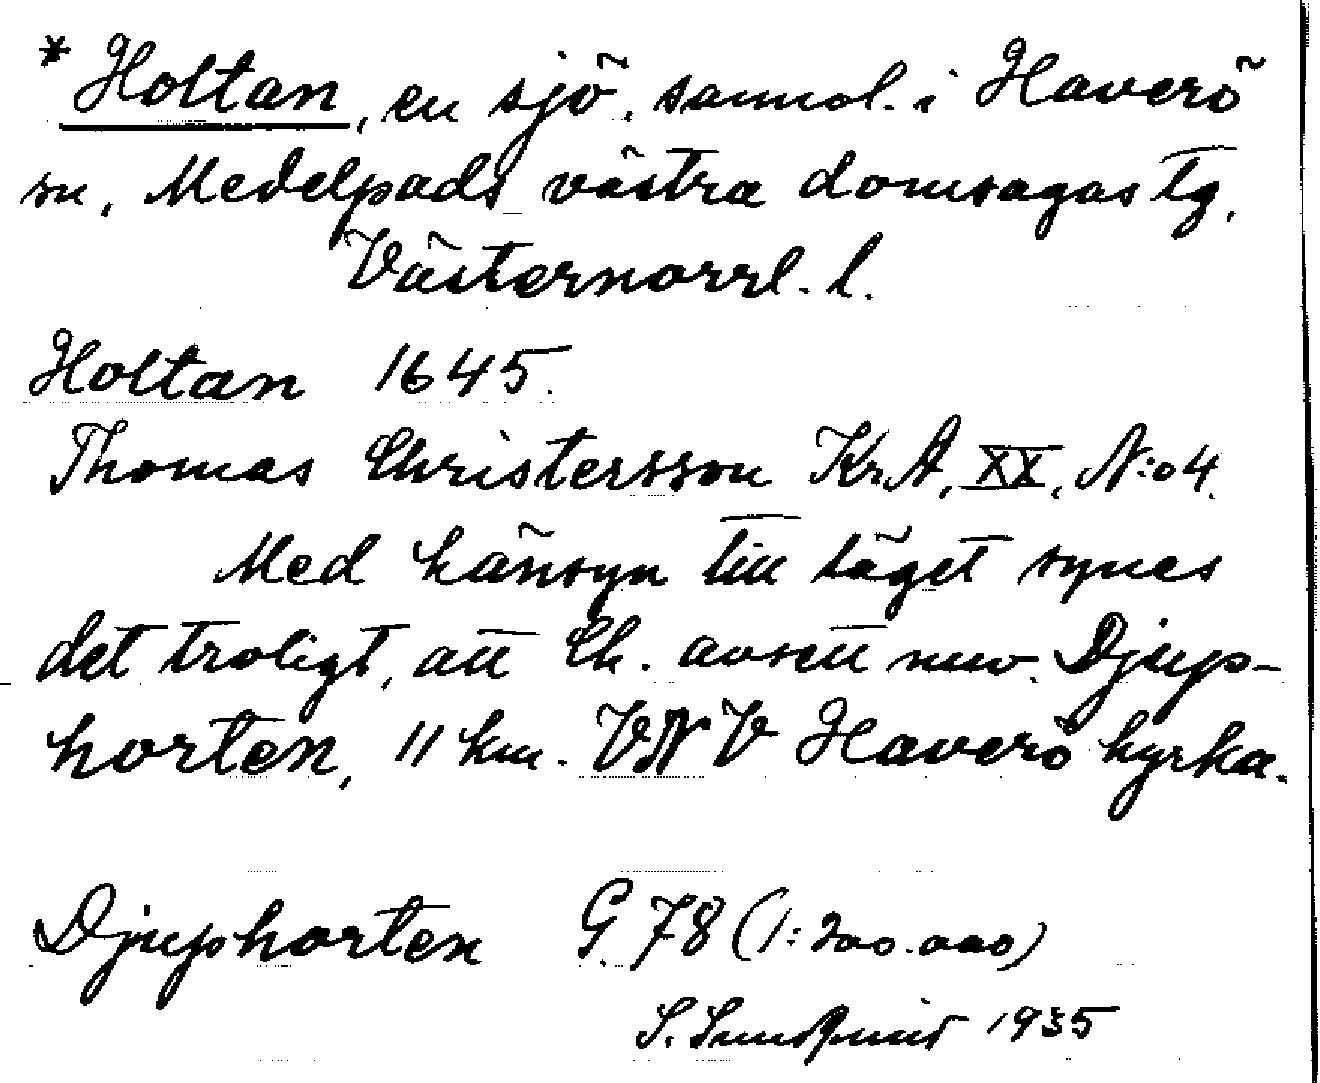 * Holtan, en sjö, sannol. i Haverö
sn, Medelpads västra domsagas tg,
Västernorrl. l.
Holtan 1645.
Thomas Christersson Kr.A, XX, N:o 4.
Med hänsyn till läget synes
det troligt, att Ch. avsett nuv. Djup-
horten, 11 km. VNV Haverö kyrka.
Djuphorten G. 78 (1:200.000)
S. Sundquist 1935